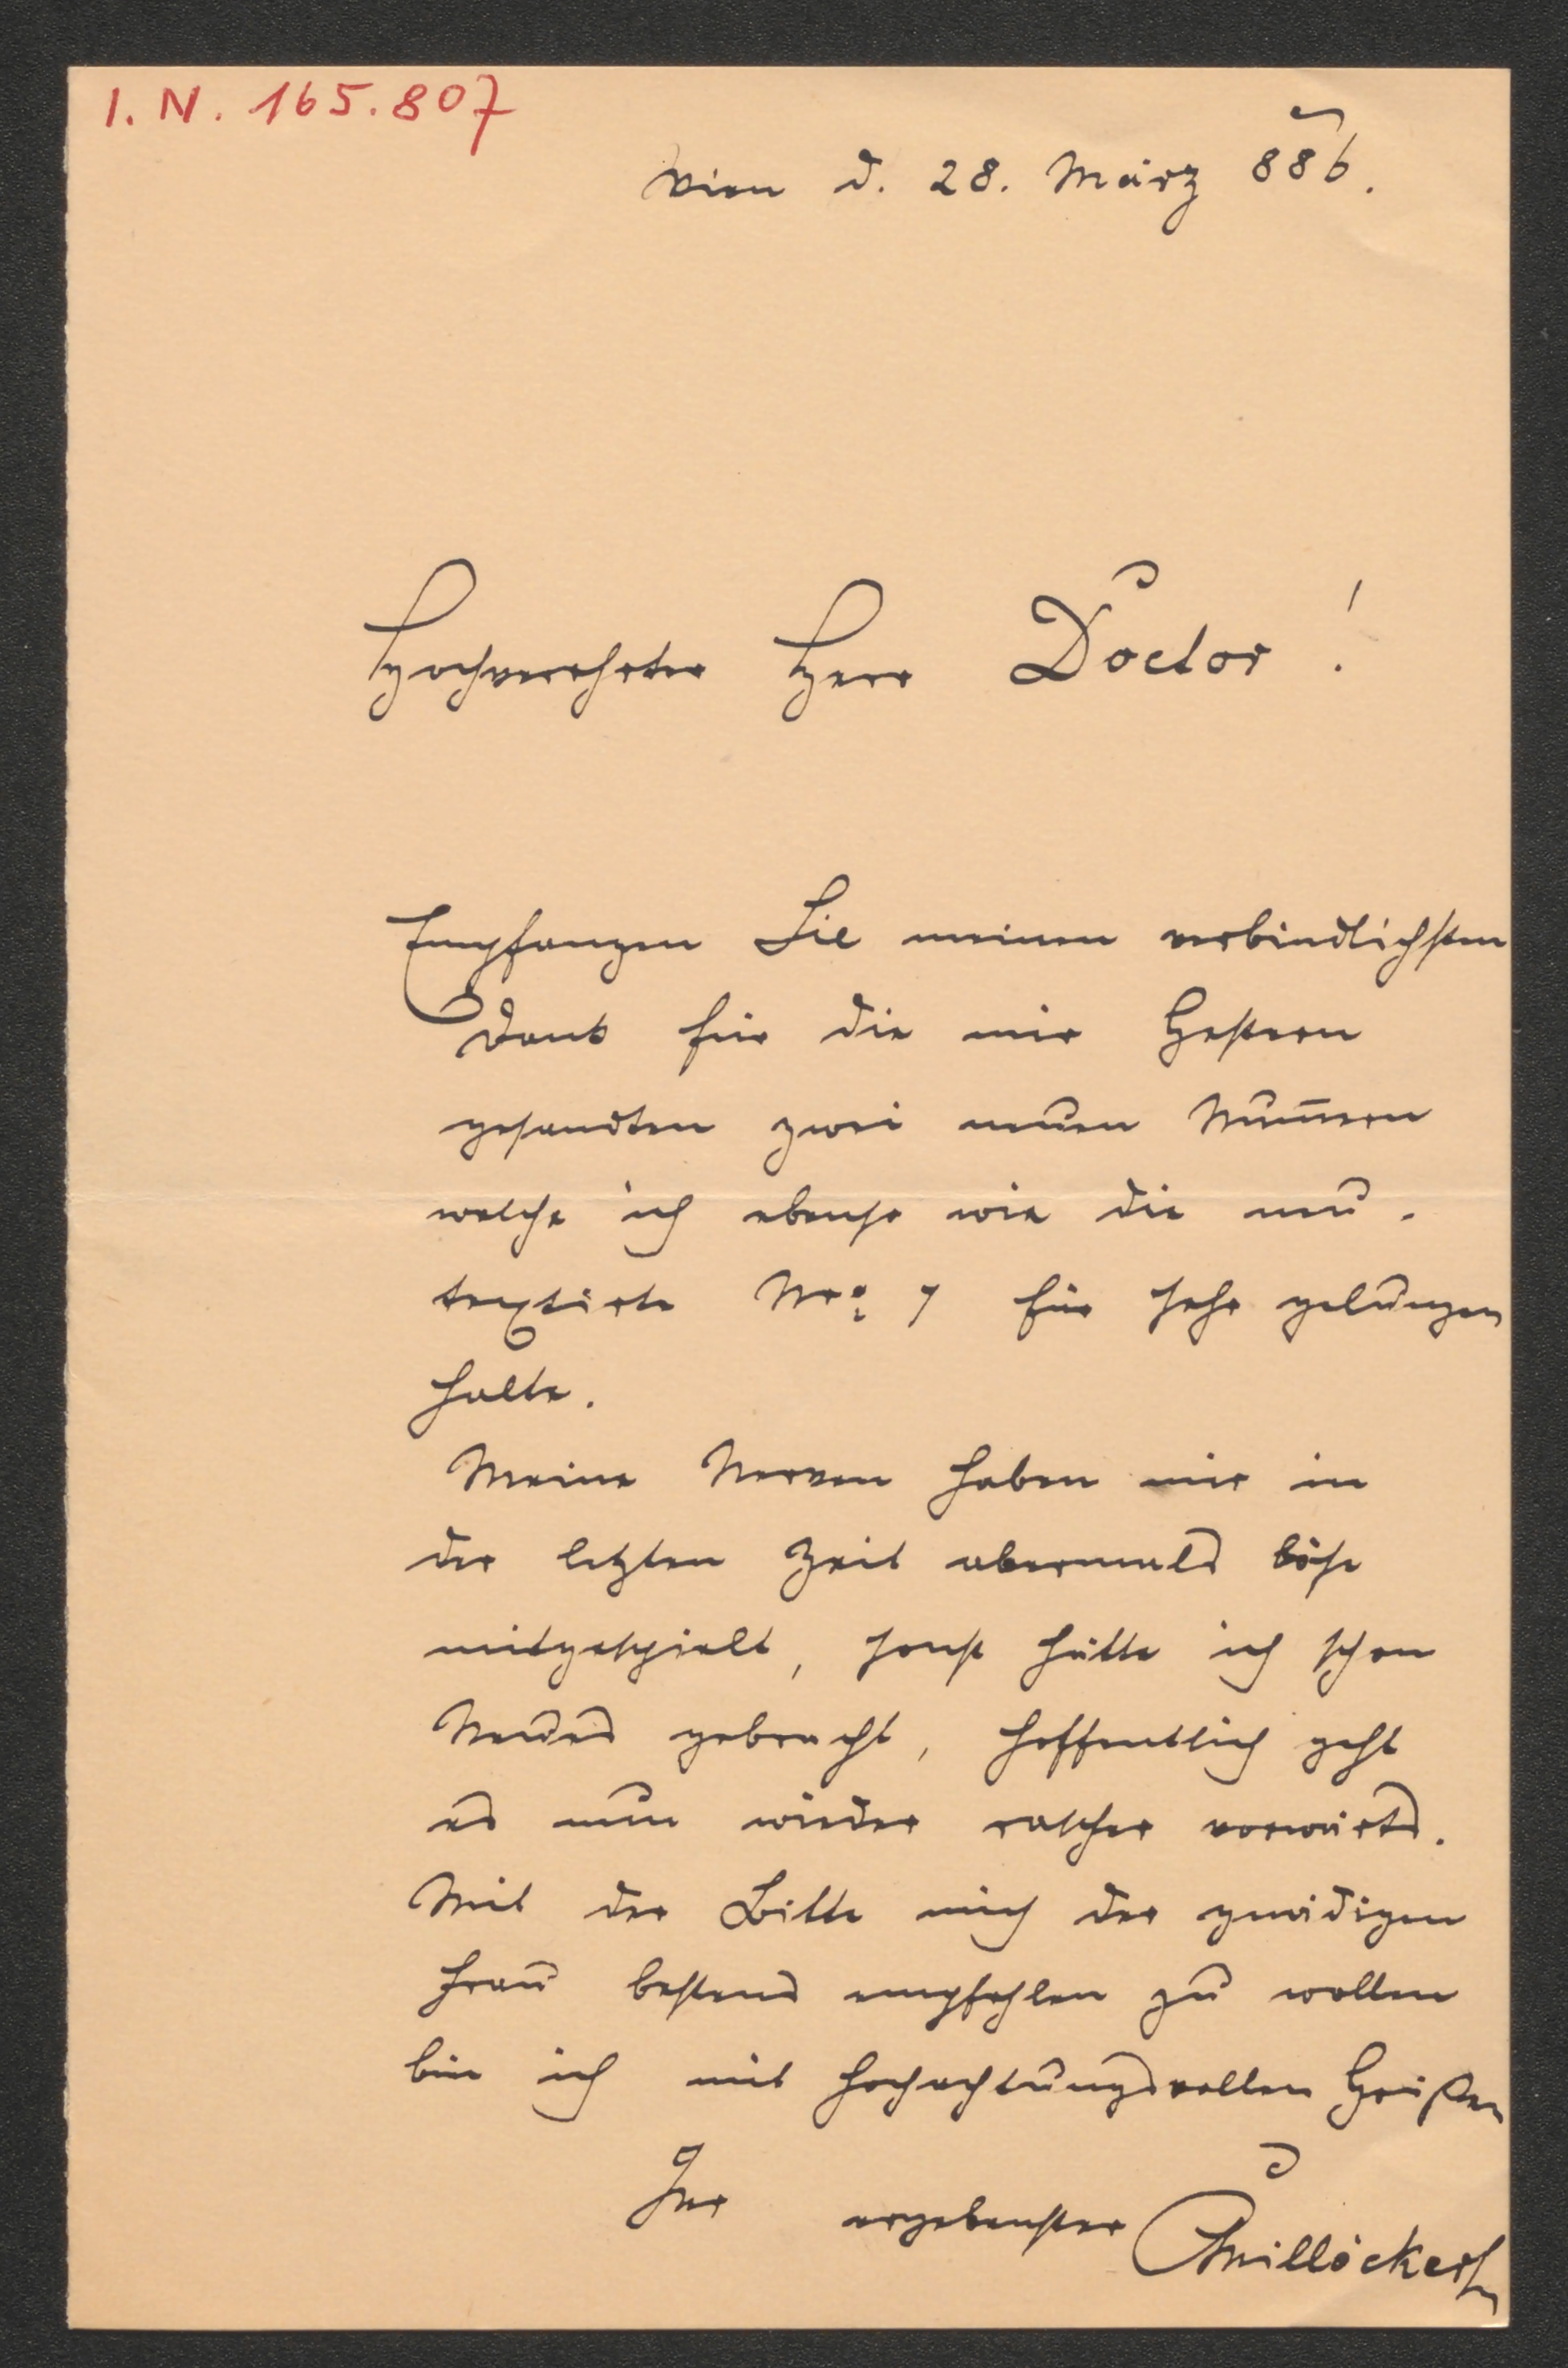 I. N. 165.807
Wien d. 28. März 886.
Hochverehrter Herr Doctor!
Empfangen Sie meinen verbindlichsten
Dank für die mir Gestern
gesandten zwei neuen Num̄ern
welche ich ebenso wie die neu-
textirte Nro: 7 für sehr gelungen
halte.
Meine Nerven haben mir in
der letzten Zeit abermals böse
mitgespielt, sonst hätte ich schon
Neues gebracht, hoffentlich geht
es nun wieder rascher vorwärts.
Mit der Bitte mich der gnädigen
Frau bestens empfehlen zu wollen
bin ich mit hochachtungsvollen Grüßen
Ihr ergebenster CMillöcker